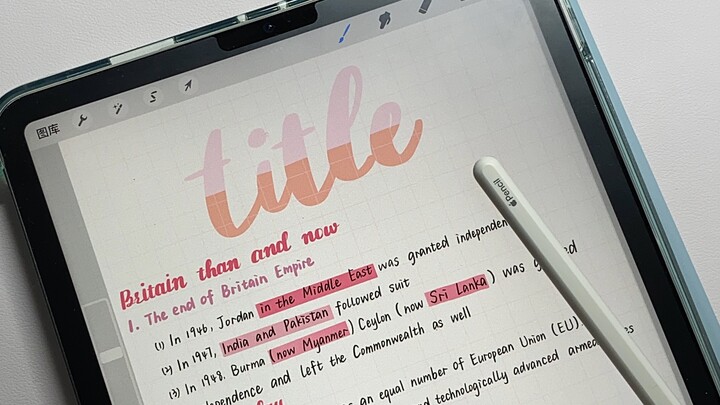 图库
title
Pencil
Britain than and now
1. The end of Britain Empire
(1) In 1946, Jordan in the Middle East was granted
(2) In 1947, India and Pakistan followed suit
(3) In 1948. Burma (now Myanmer) Ceylon (now Sri Lanka) was
and left the Commonwealth as well
an equal number of European Union (EU)
technologically advanced